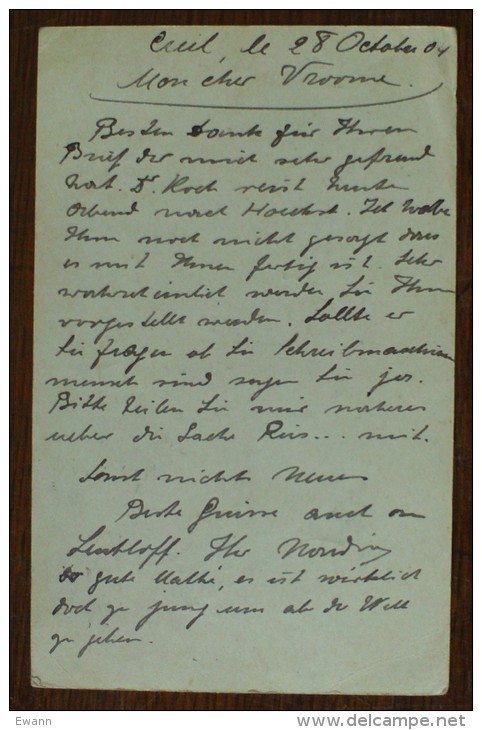 Creil, le 28 October 04
Mon cher Vroome.
Besten Dank für Ihren
Brief der mich sehr gefreut
hat. Dr. Koch reist heute
Abend nach Hoechst. Ich habe
Ihm noch nicht gesagt dass
es mit Ihnen fertig ist. Sehr
wahrscheinlich werden Sie Ihm
vorgestellt werden. Sollte er
Sie fragen ob Sie Schreibmaschinen
mensch sind sagen Sie ja.
Bitte teilen Sie mir naeheres
ueber die Sache Reis... mit.
Sonst nichts Neues
Beste Grüsse auch an
Ihr
gute, es ist wirklich
doch zu jung um ab der Welt
zu gehen.
Ewann
www.delcampe.net